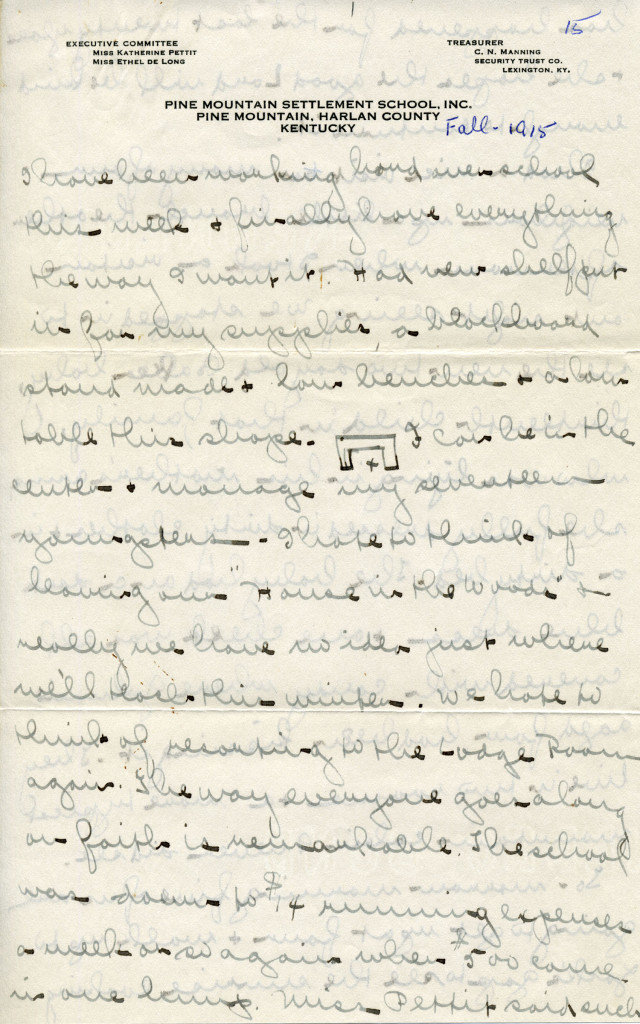 15
EXECUTIVE COMMITTEE
MISS KATHERINE PETTIT
MISS ETHEL DE LONG
TREASURER
C. N. MANNING
SECURITY TRUST CO.
LEXINGTON, KY.
PINE MOUNTAIN SETTLEMENT SCHOOL, INC.
PINE MOUNTAIN, HARLAN COUNTY
KENTUCKY
Fall - 1915
I have been working hard over school
this week & finally have everything
the way I want it. Had new shelf put
in for my supplies, a blackboard
stand made & low benches & a low
table this shape. I can be in the
center & manage my seventeen
youngsters - I hate to think of
leaving our "House in the Woods" &
really we have no idea just where
we'll teach this winter. We hate to
think of resorting to the Lodge Room
again. The way everyone goes along
on faith is remarkable. The school
was down to $14 running expenses
a week or so again when $500 came
in one lump. Miss Pettit said such